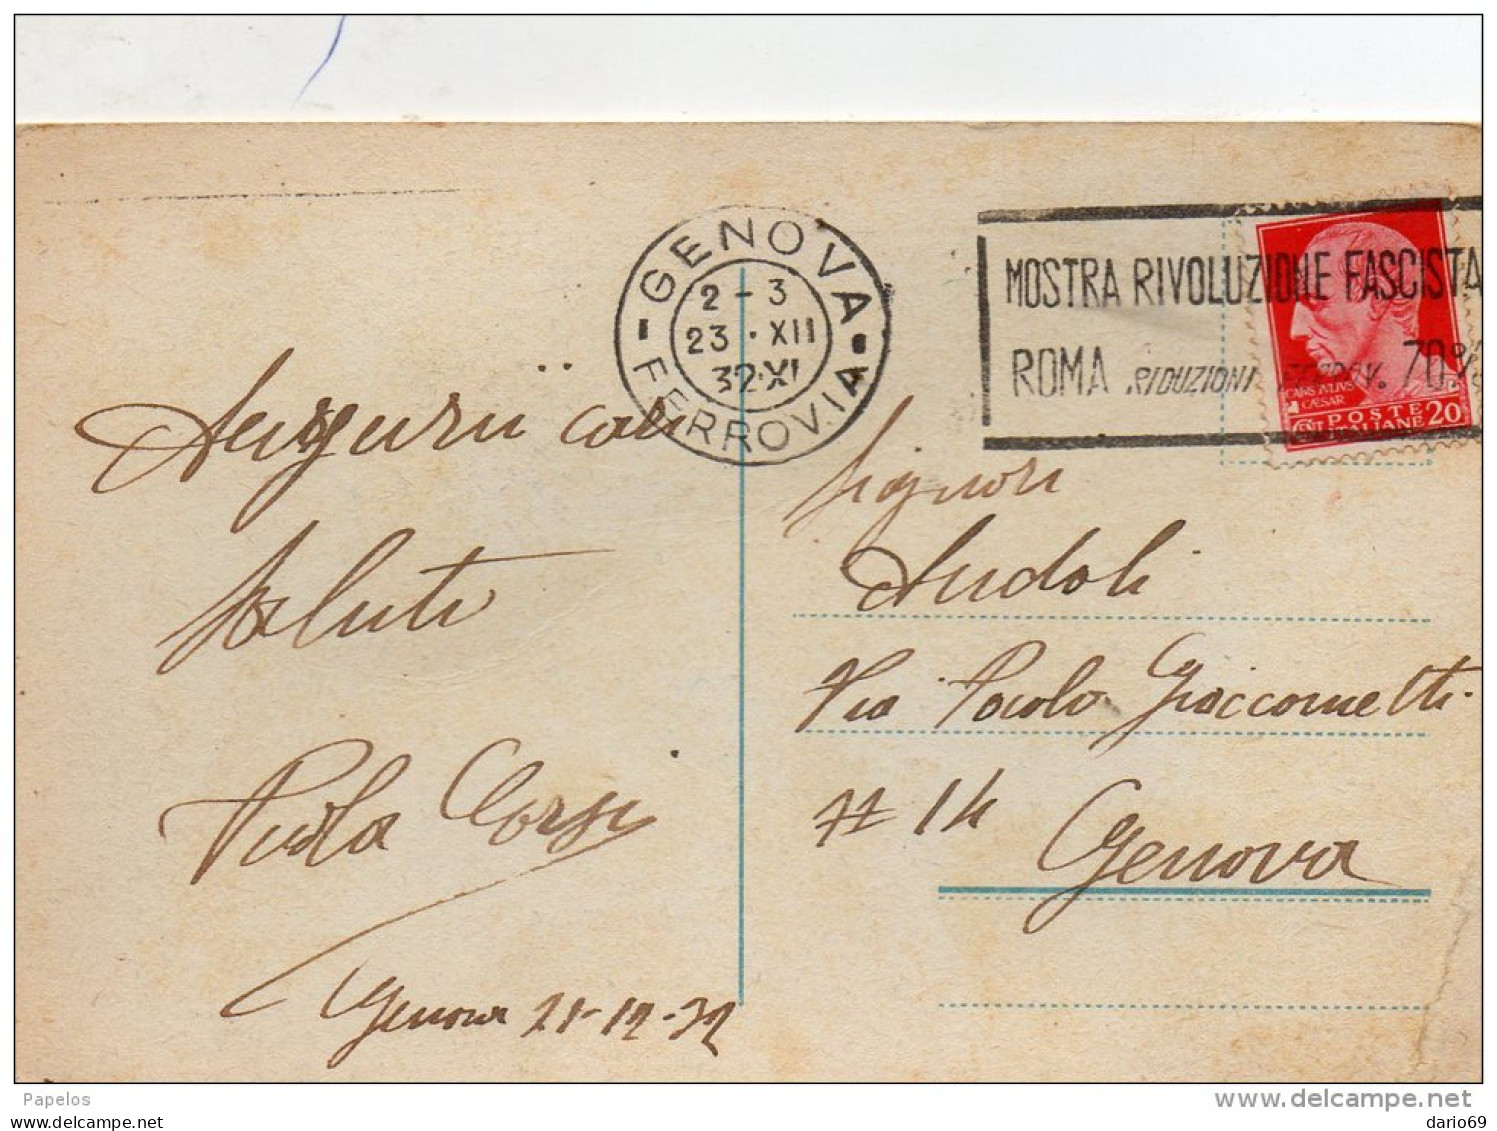 GENOVA
FERROVIA
2-3
23·XII
32·XI
MOSTRA RIVOLUZIONE FASCISTA
ROMA RIDUZIONI FERROV. 70%
CAESAR
POSTE
ITALIANE
CENT 20
Auguri cari
saluti
Corsi
Genova 21-12-32
Signori
Andoli
Via Paolo Giacometti
# 14
Genova
Papelos
delcampe.net
dario69